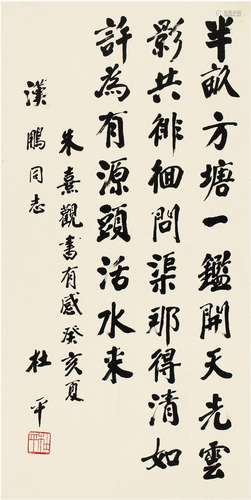 半畝方塘一鑑開天光雲
影共徘徊問渠那得清如
許為有源頭活水來
朱熹觀書有感癸亥夏
漢鵬同志
杜平